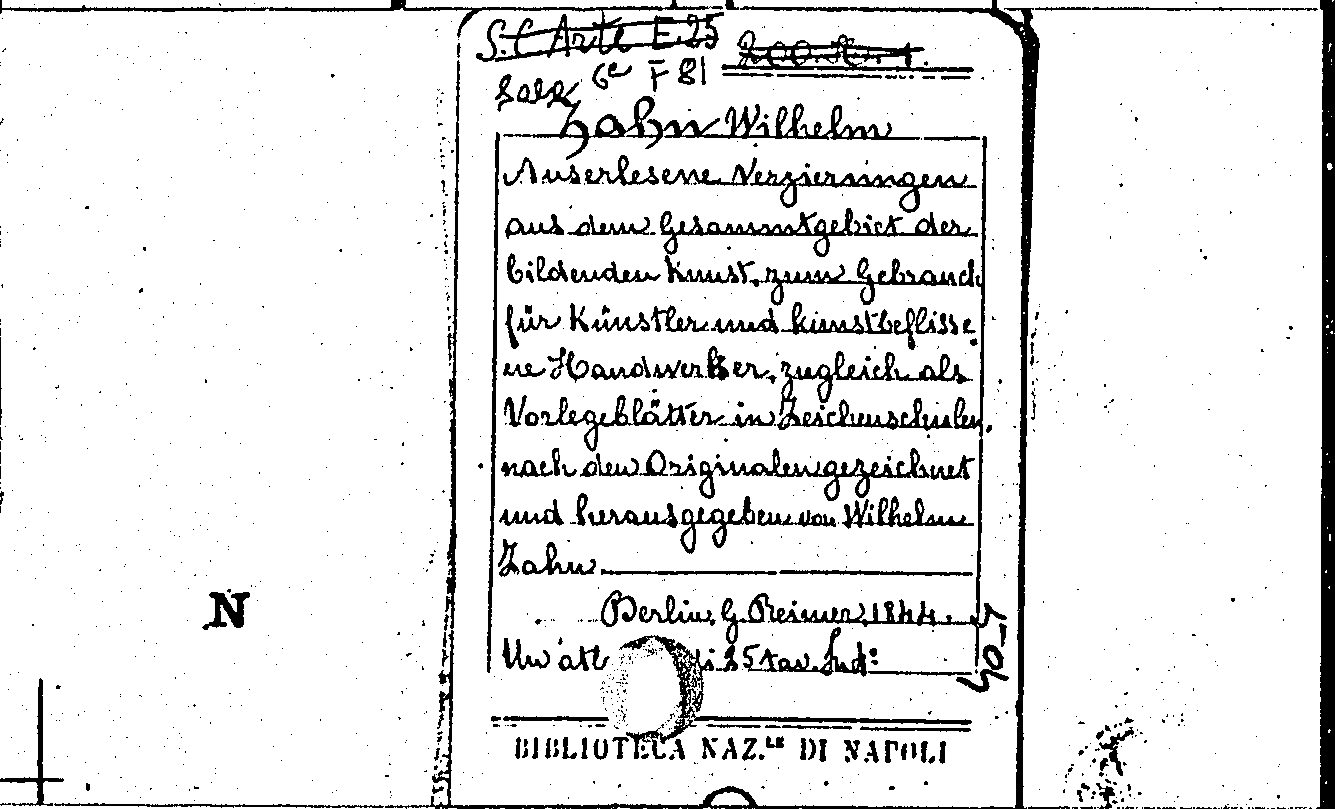 S. C Arte E.25
200. N. 1.
Sala 6ª F 81
Zahn Wilhelm
Auserlesene Verzierungen
aus dem Gesammtgebiet der
bildenden Kunst, zum Gebrauch
für Künstler und kunstbeflisse
ne Handwerker, zugleich als
Vorlegeblätter in Zeichenschulen,
nach den Originalen gezeichnet
und herausgegeben von Wilhelm
Zahn.
Berlin, G. Reimer, 1844.
Un atl di 25 tav.
40-5
BIBLIOTECA NAZ.LE DI NAPOLI
N